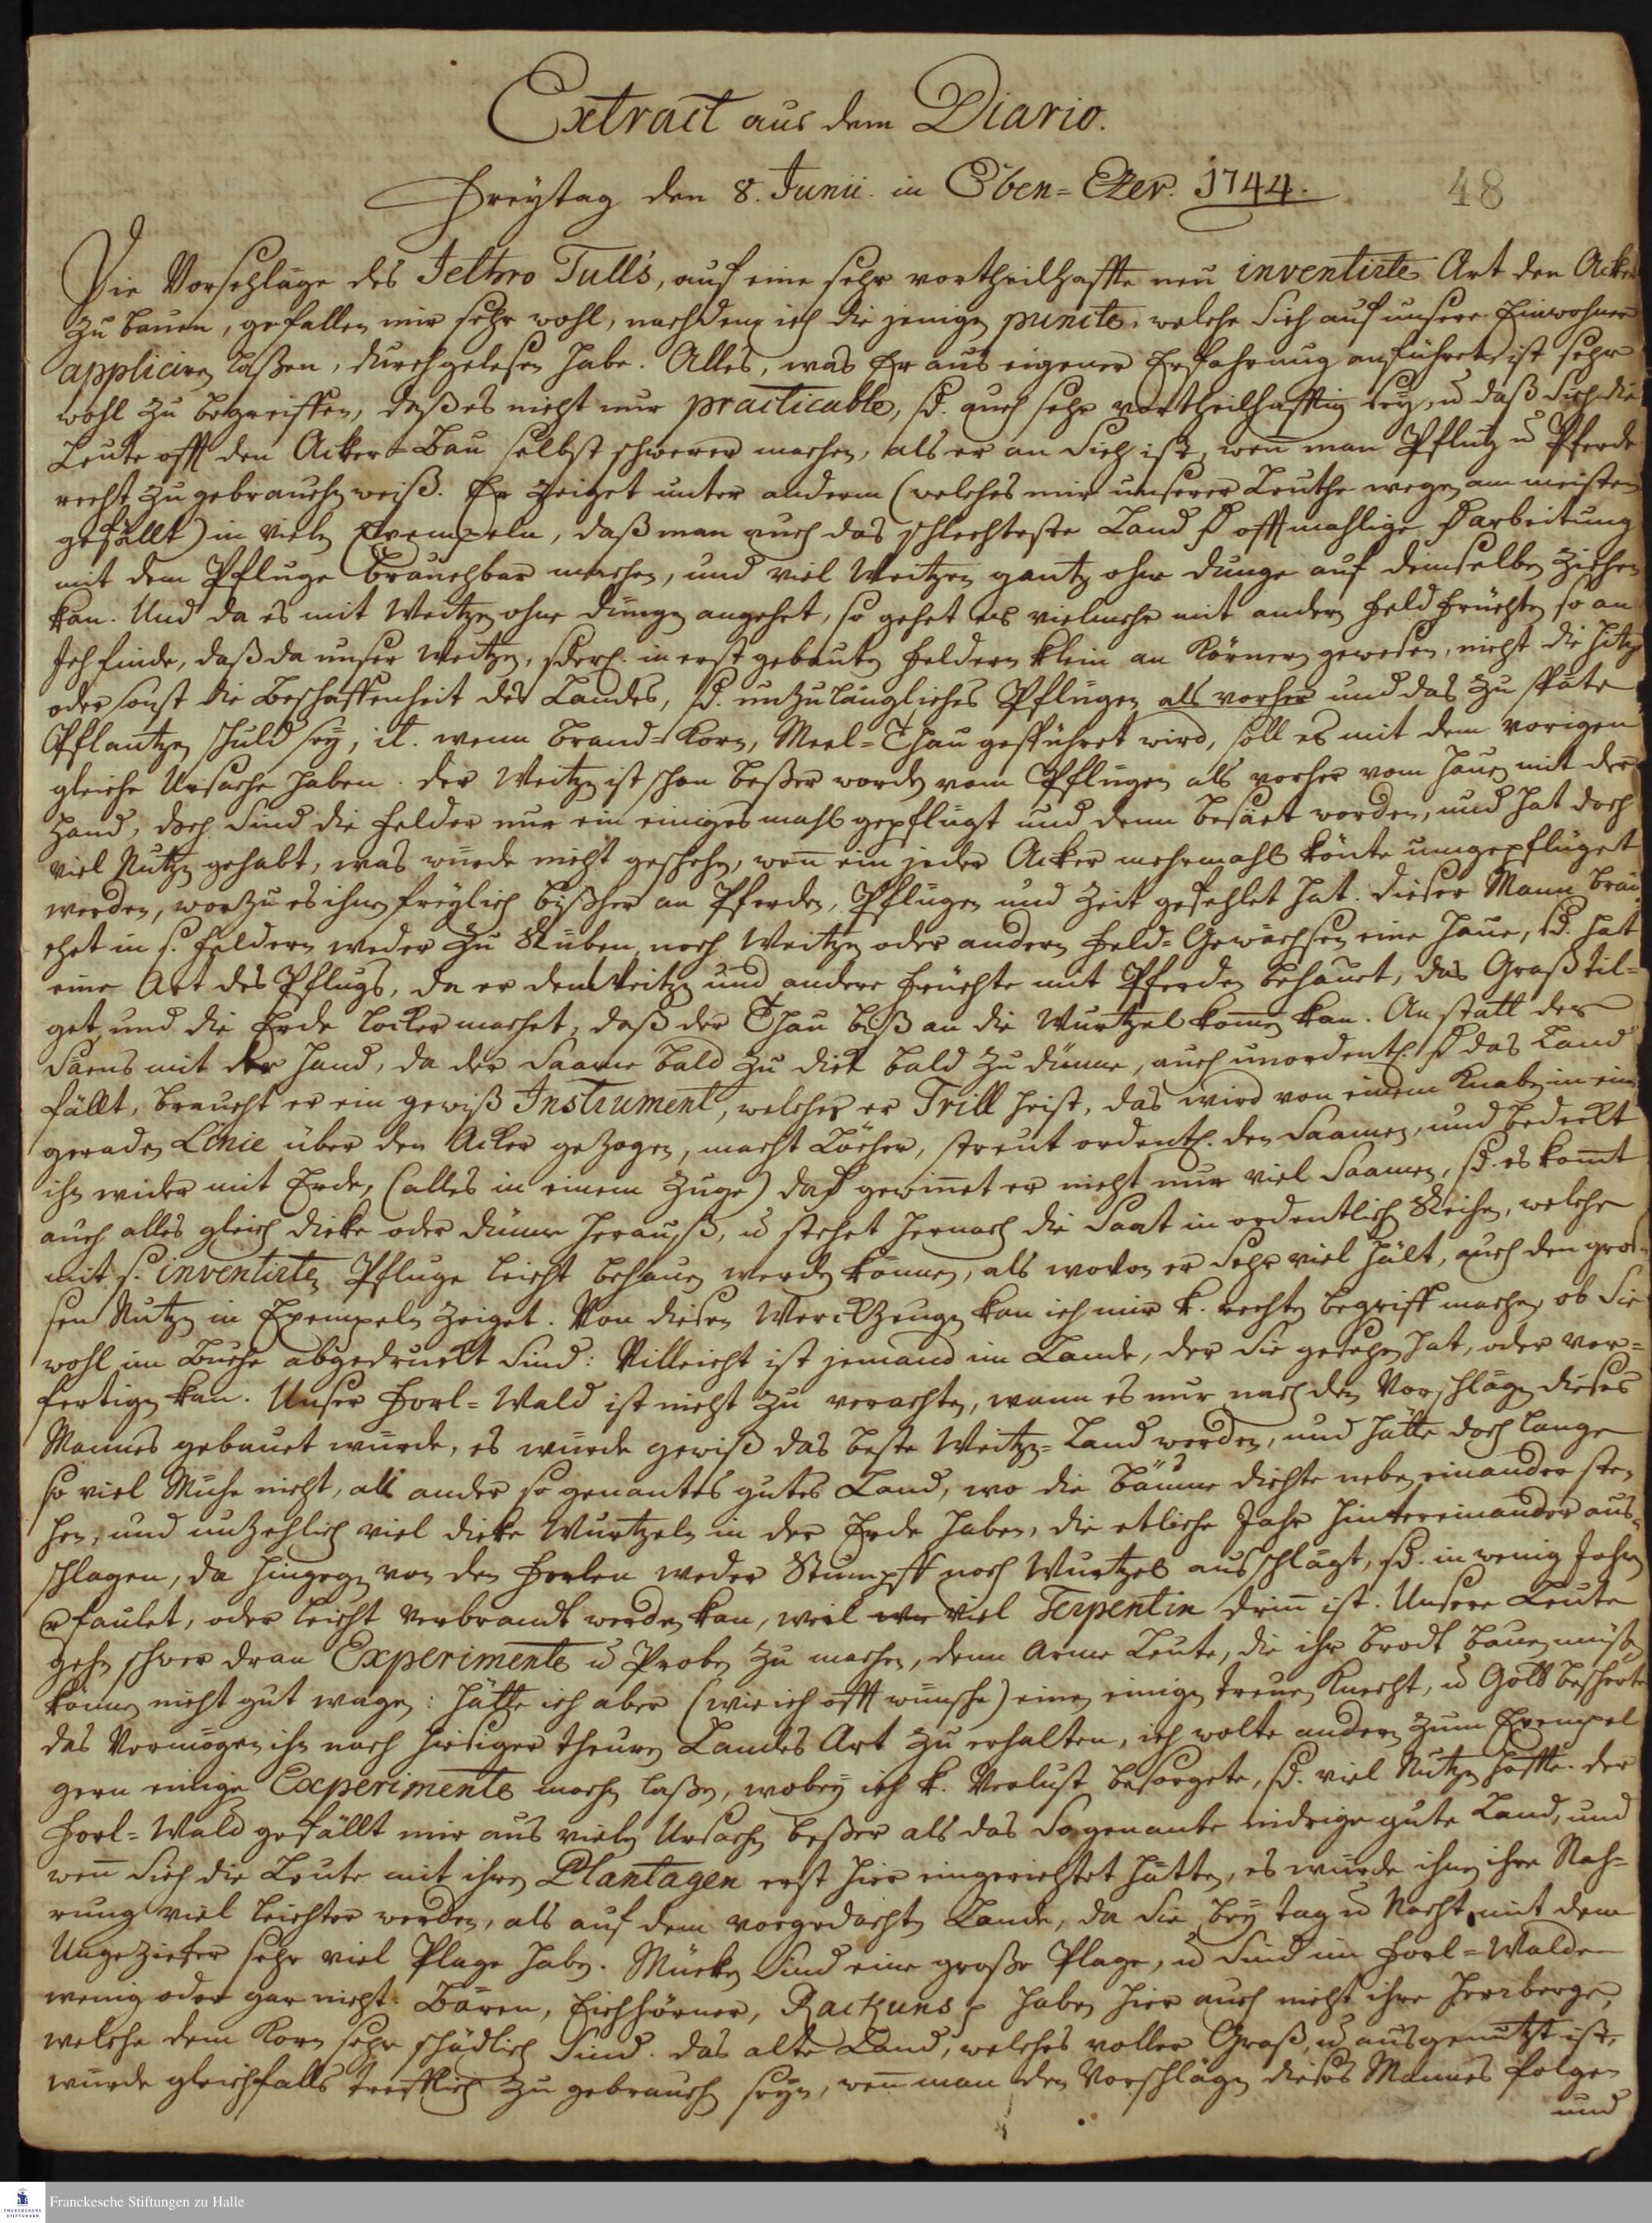 Extract aus dem Diario.
Freÿtag den 8. Junii. in Eben=Ezer. 1744.
48
Die Vorschläge des Jethro Tull's, auf eine sehr vortheilhaffte neu inventirte Art den Acker
zu bauen, gefallen mir sehr wohl, nachdem ich die jenige puncte, welche sich auf unsere Einwohner
appliciren laßen, durchgelesen habe. Alles, was Er aus eigener Erfahrung anführet ist sehr
wohl zu begreiffen, daß es nicht nur practicable, sd. auch sehr vortheilhafftig seÿ, u daß sich die
Leute offt den Acker=Bau selbst schwerer machen, als er an sich ist, weñ man Pflug u Pferde
recht zu gebrauchen weiß. Er zeiget unter anderm (welches mir unserer Leuthe wegen am meisten
gefällt) in vielen Exempeln, daß man auch das schlechteste Land offtmahlige arbeitung
mit dem Pfluge brauchbar machen, und viel Weitzen gantz ohne dunge auf demselben ziehen
kan. Und da es mit Weitzen ohne düngen angehet, so gehet es vielmehr mit andern Feld früchten so an
Ich finde, daß da unser Weitzen, in erst gebauten Feldern klein an Körnern gewesen, nicht die Hitze
oder sonst die Beschaffenheit des Landes, sd. unzulängliches Pflügen als vorher und das zu späte
Pflantzen schuld seÿ, it. wenn Brand=Korn, Meel=Thau gespühret wird, soll es mit dem vorigen
gleiche Ursache haben. Der Weitzen ist schon beßer worden vom Pflügen als vorher vom Hauen mit der
Hand, doch sind die Felder nur ein einiges mahl gepflügt und denn besäet worden, und hat doch
viel Nutzen gehabt, was würde nicht geschehen, weñ ein jeder Acker mehrmahls könte umgepflüget
werden, worzu es ihnen freÿlich bißher an Pferden, Pflügen und Zeit gefehlet hat. Dieser Mann brau=
chet in s. Feldern weder zu Rüben, noch Weitzen oder andern Feld=Gewächsen eine Haue, sd. hat
eine Art des Pflugs, da er den Weitzen und andere Früchte mit Pferden behauet, das Graß til=
get, und die Erde locker machet, daß der Thau biß an die Wurtzel kom̃en kan. An statt des
Säens mit der Hand, da der Saame bald zu dick bald zu dünne, auch unordentl. das Land
fällt, braucht er ein gewiß Instrument, welches er Trill heist, das wird von einem Knaben in einer
geraden Linie über den Acker gezogen, macht Löcher, streut ordentl. den Saamen, und bedeckt
ihn wider mit Erde, (alles in einem Zuge) gewiñet er nicht nur viel Saamen, sd. es kom̃t
auch alles gleich dicke oder dünne herauß, u stehet hernach die Saat in ordentlich Reihen, welche
mit s. inventirten Pfluge leicht behauen werden können, als wovon er sehr viel hält, auch den gros=
sen Nutzen in Exempeln zeiget. Von diesen Werckzeugen kan ich mir k. rechten begriff machen, ob sie
wohl im Buche abgedruckt sind: Villeicht ist jemand im Lande, der sie gesehen hat, oder ver=
fertigen kan. Unser Forl=Wald ist nicht zu verachten, wann es nur nach den Vorschlägen dieses
Mannes gebauet würde, es würde gewiß das beste Weitzen=Land werden, und hätte doch lange
so viel Mühe nicht, als ander so genantes gutes Land, wo die Bäume dichte neben einander ste=
hen, und unzehlich viel dicke Wurtzeln in der Erde haben, die etliche Jahr hintereinander aus=
schlagen, da hingegen von den Forlen weder Stumpff noch Wurtzel ausschlägt, sd. in wenig Jahren
faulet, oder leicht verbrandt werden kan, weil viel Terpentin driñ ist. Unsere Leute
gehen schwer dran Experimente u Proben zu machen, denn Arme Leute, die ihr brodt bauen müßen
können nicht gut wagen: hätte ich aber (wie ich offt wünsche) einen einigen treuen Knecht, u Gott bescherte
das Vermögen ihn nach hiesiger theuren Landes Art zu erhalten, ich wolte andern zum Exempel
gern einige Experimente machen laßen, wobeÿ ich k. Verlust besorgete, sd. viel Nutzen hoffte. der
Forl=Wald gefällt mir aus vielen Ursachen beßer als das so genante nidrige gute Land, und
weñ sich die Leute mit ihren Plantagen erst hier eingerichtet hätten, es würde ihnen ihre Nah=
rung viel leichter werden, als auf dem vorgedachten Lande, da sie beÿ tag u Nacht mit dem
Ungeziefer sehr viel Plage haben. Mücken sind eine große Plage, u sind im Forl=Walde
wenig oder gar nicht. Bären, Eichhörner, Rackuns haben hier auch nicht ihre Herrberge,
welche dem Korn sehr schädlich sind. das alte Land, welches voller Graß, u ausgenutzt ist,
würde gleichfalls trefflich zu gebrauchen seÿn, weñ man den Vorschlägen dieses Mannes folgen
und
Franckesche Stiftungen zu Halle